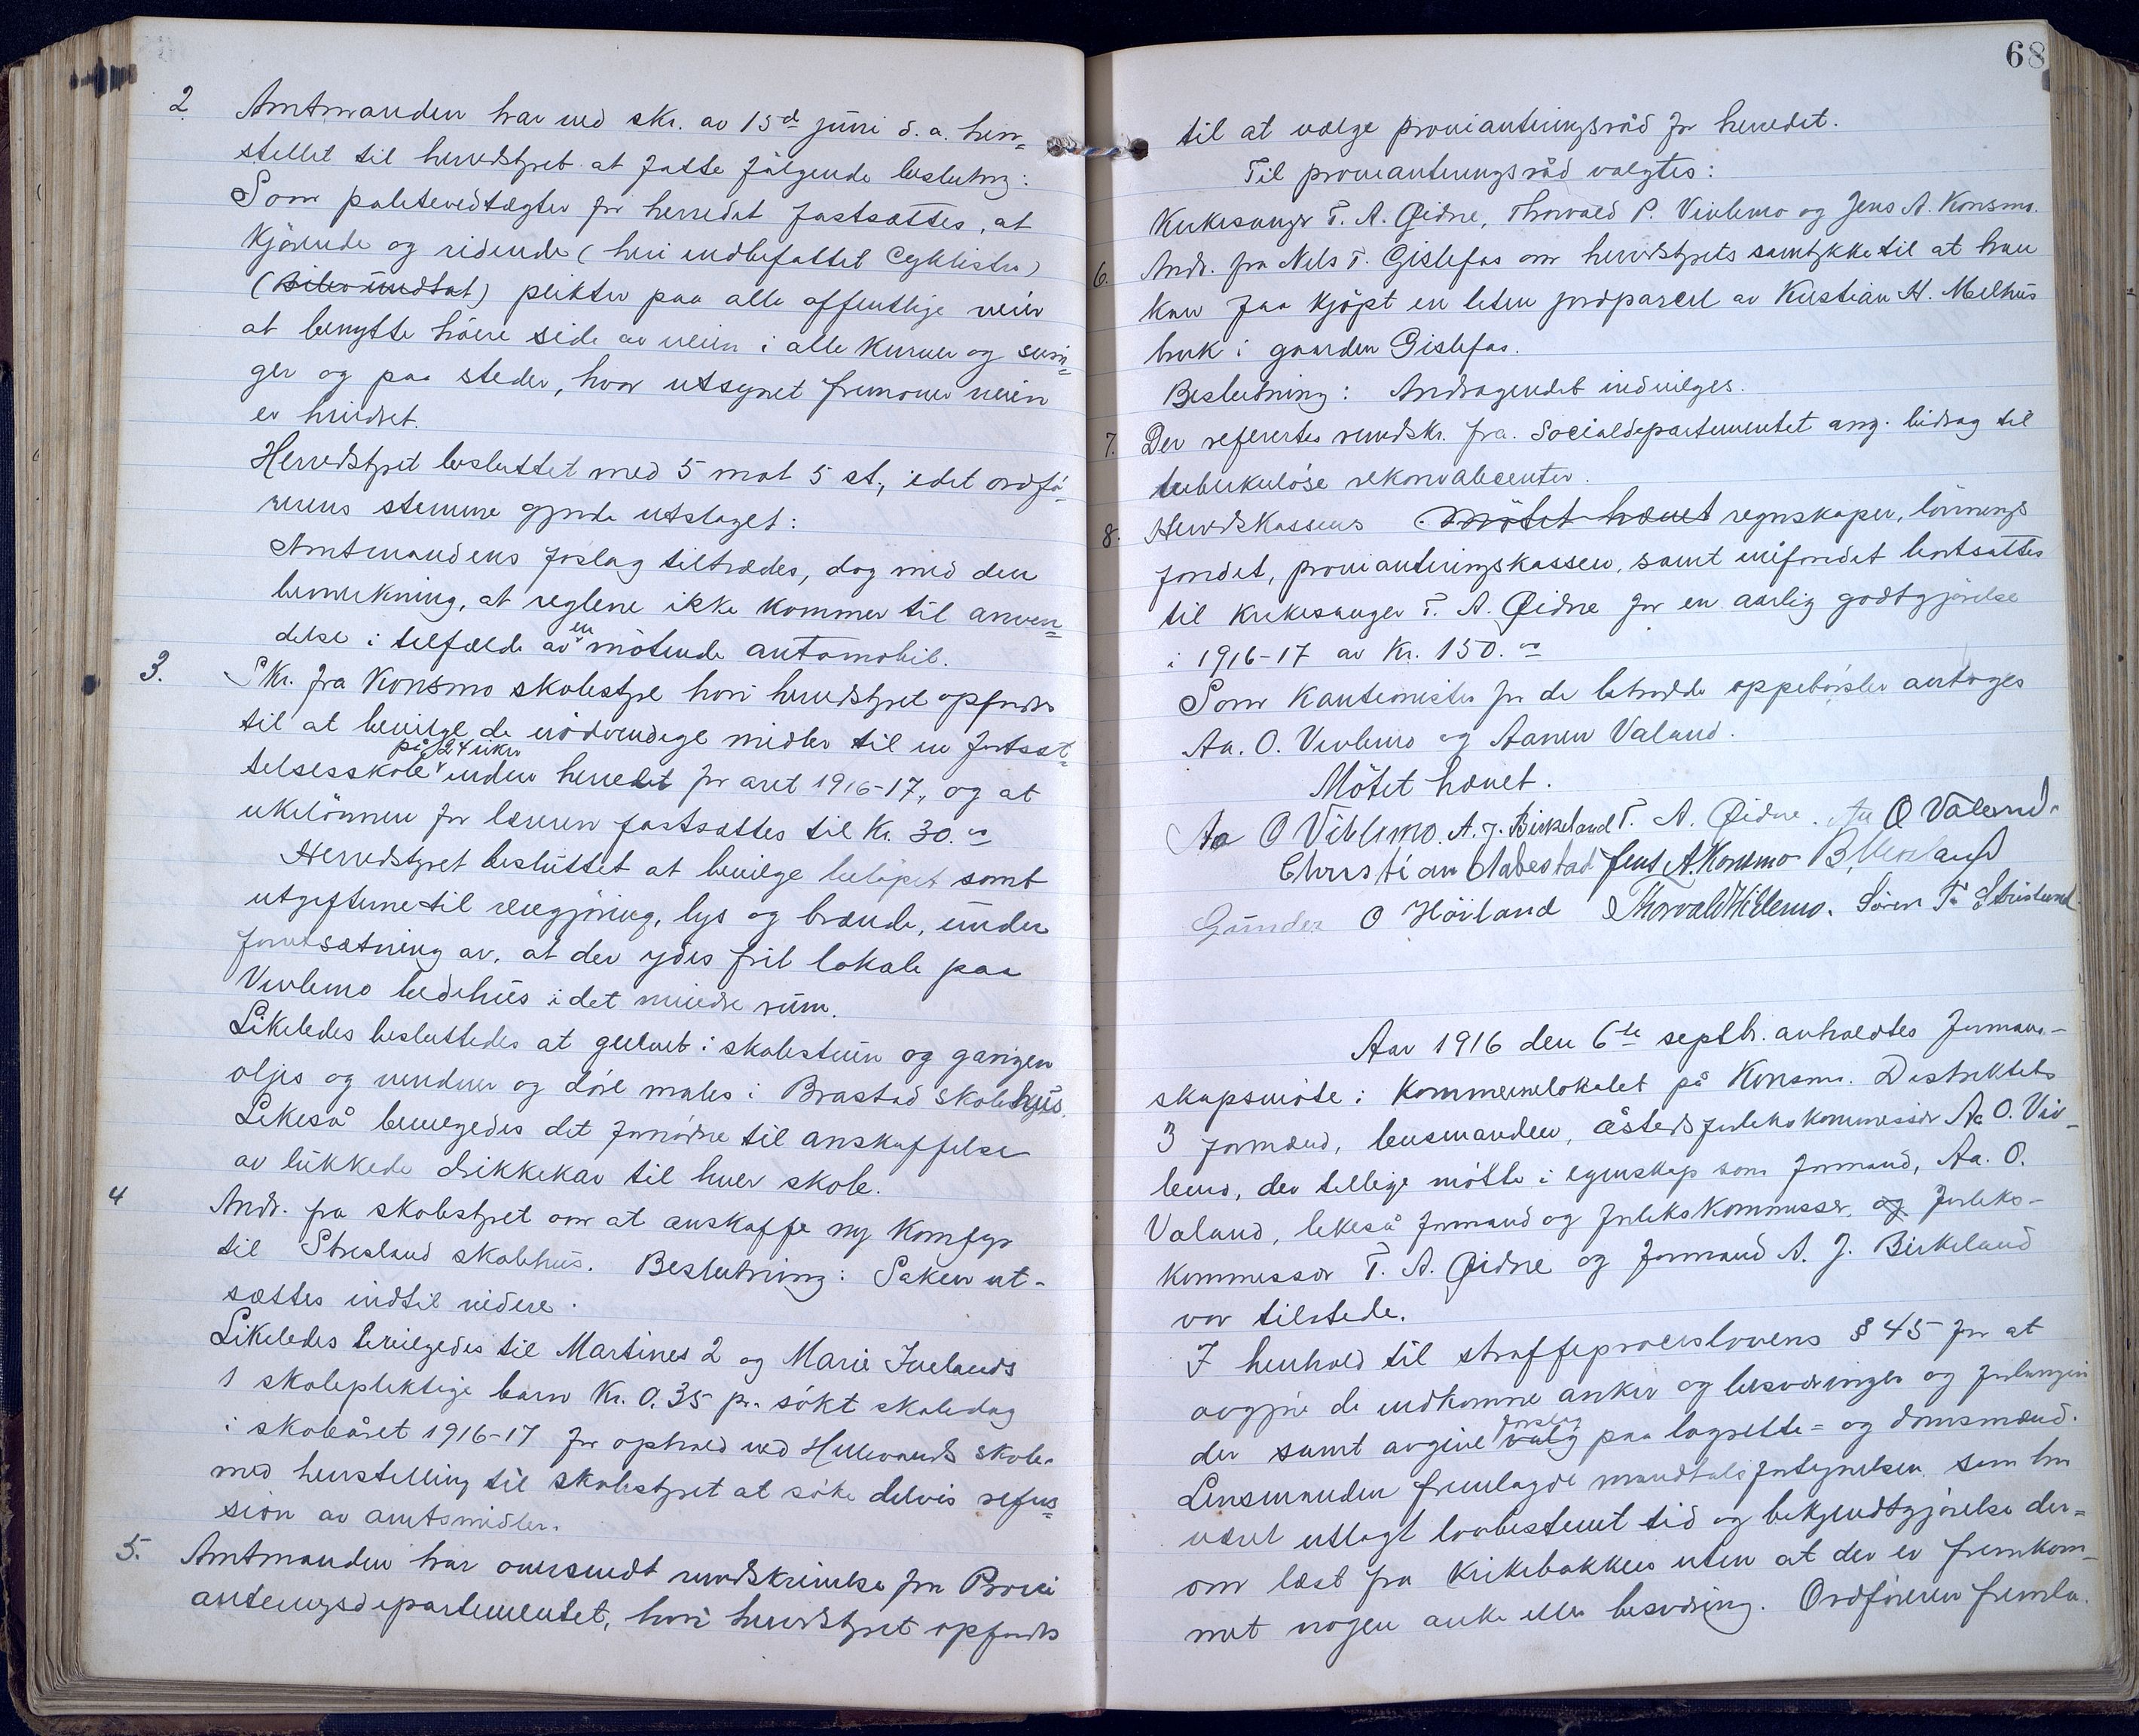 2. Amtmanden har ved skr. av 15de juni d.a. hen=
stillet til herredstyret at fatte følgende beslutng:
Som politivedtægter for herredet fastsættes, at
kjörende og ridende (heri indbefattet Cyklister)
(biler undtat) plikter paa alle offentlige veier
at benytte höire side av veien i alle kurver og svin=
ger og paa steder, hvor utsynet fremover veien
er hindret.
Herredstyret besluttet med 5 mot 5 st., idet ordfö=
rerens stemme gjorde utslaget:
Amtmandens forslag tiltrædes, dog med den
bemerkning, at reglene ikke kommer til anven=
delse i tilfælde av en mötende automobil.
3. Skr. fra Konsmo skolestyre hvori herredstyret opfordres
til at bevilge de nödvendige midler til en fortsæt=
på 24 uker
telsesskole inden herredet for året 1916-17, og at
ukelönnen for læreren fastsættes til Kr. 30.00
Herredstyret besluttet at bevilge belöpet samt
utgifterne til rengjöring, lys og brænde, under
forutsætning av, at der ydes frit lokale paa
Vivlemo bedehus i det mindre rum.
Likeledes besluttedes at gulvet i skolestuen og gangen
oljes og vinduer og döre males i Brastad skolehus.
Likeså bevilgedes det fornödne til anskaffelse
av lukkede drikkekar til hver skole.
4 Andr. fra skolestyret om at anskaffe ny Komfyr
til Stusland skolehus. Beslutning: Saken ut-
sættes indtil videre.
Likeledes bevilgedes til Martines 2 og Marie Ivelands
1 skolepliktige barn Kr. 0,35 pr. sökt skoledag
i skoleåret 1916-17 for ophold ved Hellevands skole
med henstilling til skolestyret at söke delvis refus=
sion av amtsmidler.
5. Amtmanden har oversendt rundskrivelse fra Provi
anteringsdepartementet, hvori herredstyret opfordres
68
til at vælge provianteringsråd for herredet.
Til provianteringsråd valgtes:
Kirkesanger T. A. Øidne, Thorvald P. Vivlemo og Jens A. Konsmo.
6. Andr. fra Nels T. Gislefos om herredstyrets samtykke til at han
kan faa kjöpt en liten jordparcel av Kristian H. Melhus
bruk i gaarden Gislefos.
Beslutning: Andragendet indvilges.
7. Der refertes rundskr. fra Socialdepartementet ang. bidrag til
tuberkulöse rekonvalecenter.
8. Herredskassens Mötet hævet regnskaper, lönnings
fondet, provianteringskassen, samt veifondet bortsattes
til Kirkesanger T. A. Øidne for en aarlig godtgjörelse
i 1916-17 av Kr. 150.00
Som Kautionister for de betrodde oppebörsler antoges
Aa. O. Vivlemo og Aanen Valand.
Mötet hævet.
Aa O Viblemo. A. J. Birkeland T. A. Øidne. Aa O Valand.
Christian Aabestad Jens A. Konsmo
Gunder O Höiland Thorvald Viblemo. Sören T.
Aar 1916 den 6te septbr. avholdtes formand-
skapsmöte i Kommunelokalet på Konsmo. Distriktets
3 formænd, lensmanden, åsteds forlikskommissær Aa O. Viv-
lemo, der tillige mötte i egenskap som formand, Aa. O.
Valand, likeså formand og forlikskommissær, og forliks-
kommissær T. A. Øidne og formand A. J. Birkeland
var tilstede.
I henhold til straffeproceslovens § 45 for at
avgjöre de indkomne anker og besværinger og forlangen
forslag
der samt avgive valg paa lagrette= og domsmænd.
Lensmanden fremlagde mandtalsfortegnelsen som har
været utlagt lovbestemt tid og bekjendtgjörelse der=
om læst fra Kirkebakken uten at der er fremkom-
met nogen anke eller besværing. Ordföreren fremla.